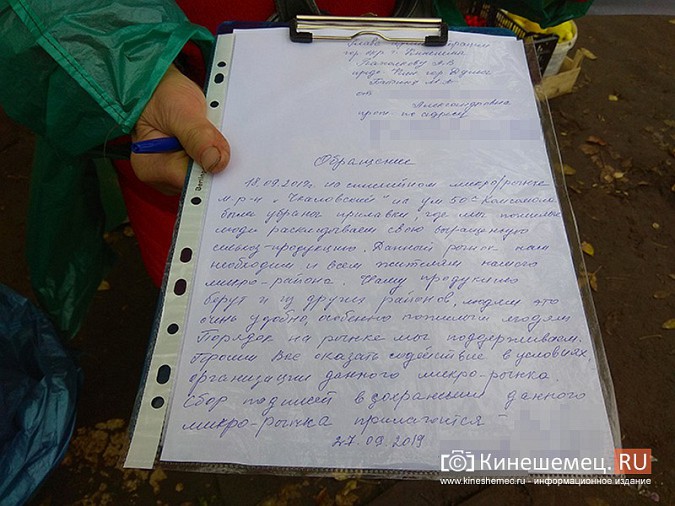 Глава администрации
гор. окр. г. Кинешма
от
Александровна
прож. по адресу
Обращение
18.09.2019г на стихийном микро/рынке
м-р-н "Чкаловский" на ул. 50-Комсомола
были убраны прилавки, где мы пожилые
люди раскладываем свою выращенную
сельхоз-продукцию. Данный рынок нам
необходим и всем жителям нашего
микро-района. Нашу продукцию
берут и из других районов, людям это
очень удобно, особенно пожилым людям
Порядок на рынке мы поддерживаем.
Просим Вас оказать содействие в условиях,
организации данного микро-рынка.
Сбор подписей в сохранении данного
микро-рынка прилагается
27.09.2019
Кинешемец.RU
www.kineshemec.ru - информационное издание